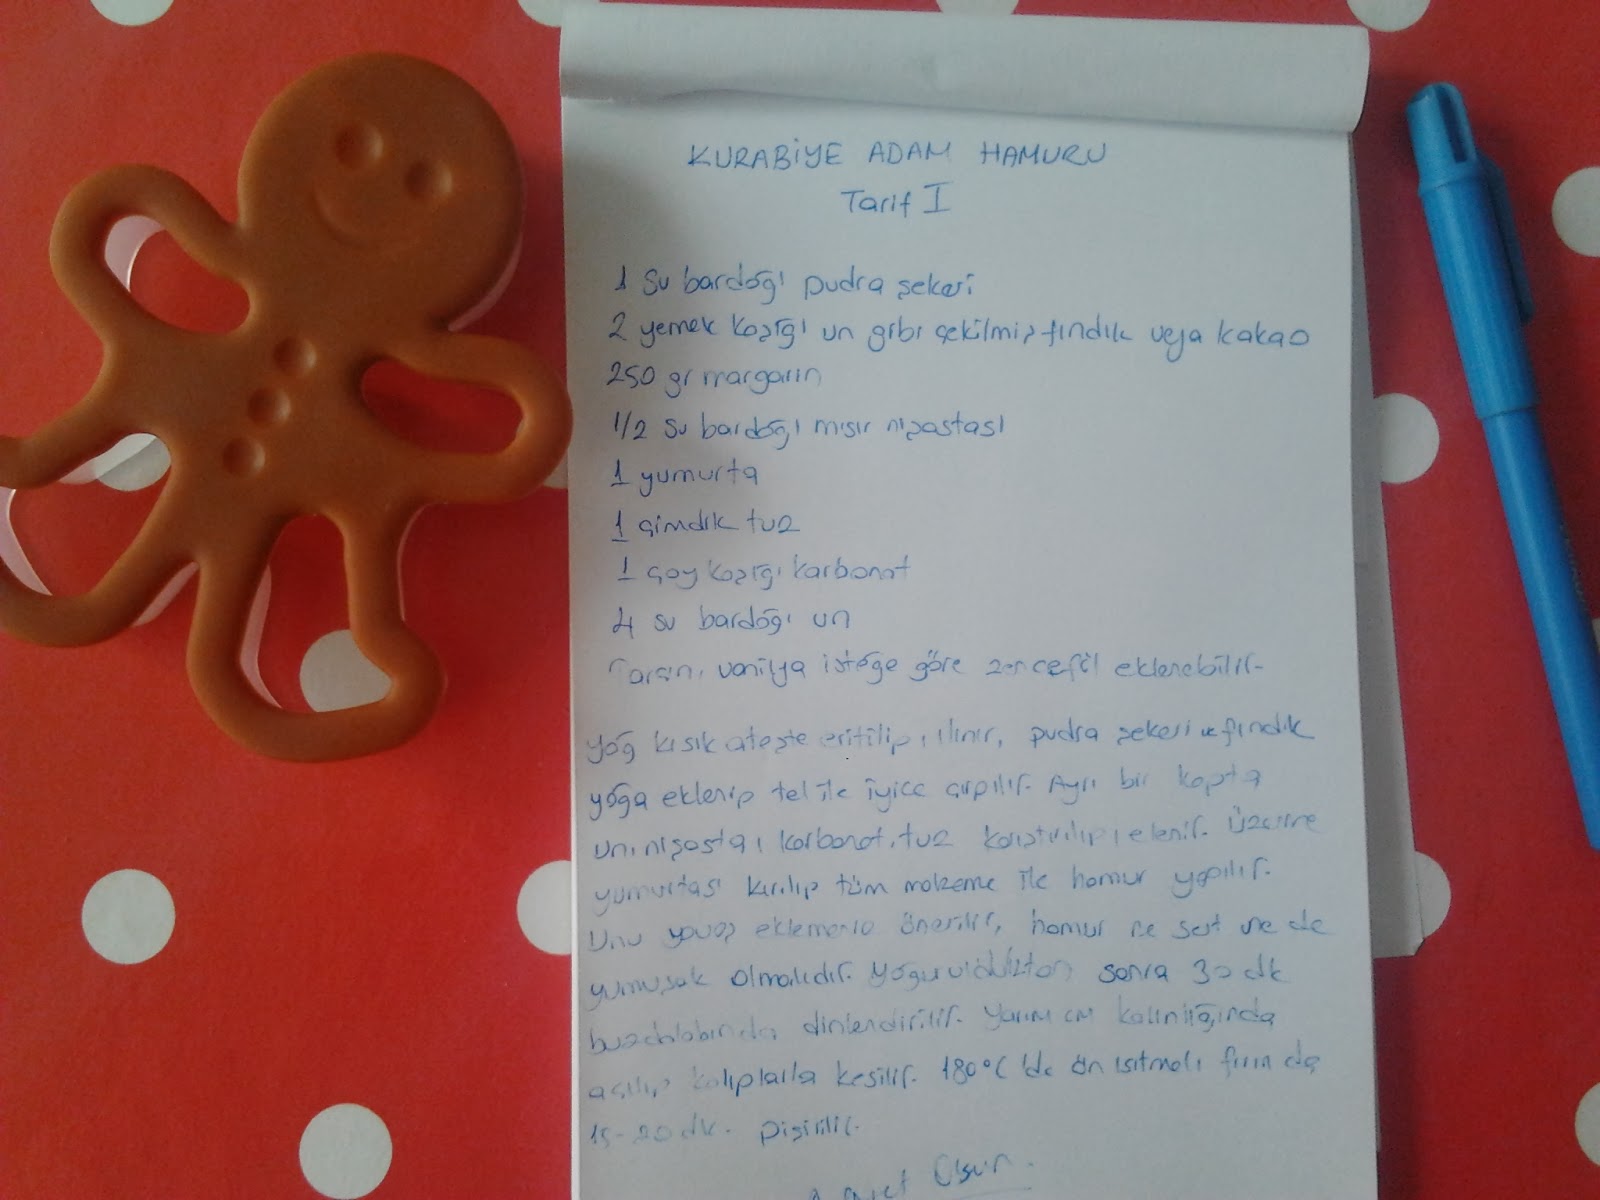 KURABİYE ADAM HAMURU
Tarif I
1 Su bardağı pudra şekeri
2 yemek kaşığı un gibi çekilmiş fındık veya kakao
250 gr margarin
1/2 su bardağı mısır nişastası
1 yumurta
1 çimdik tuz
1 çay kaşığı karbonat
4 su bardağı un
Tarçın, vanilya isteğe göre zencefil eklenebilir.
Yağ kısık ateşte eritilip, ılınır, pudra şekeri ve fındık
yağa eklenip tel ile iyice çırpılır. Ayrı bir kapta
un, nişasta, karbonat, tuz karıştırılıp, elenir. Üzerine
yumurtası kırılıp tüm malzeme ile hamur yapılır.
Unu yavaş eklemeniz önerilir, hamur ne sert ne de
yumuşak olmalıdır. Yoğurulduktan sonra 30 dk
buzdolabında dinlendirilir. Yarım cm kalınlığında
açılıp kalıplarla kesilir. 180°C 'de ön ısıtmalı fırın da
15-20 dk. pişirilir.
Olsun.